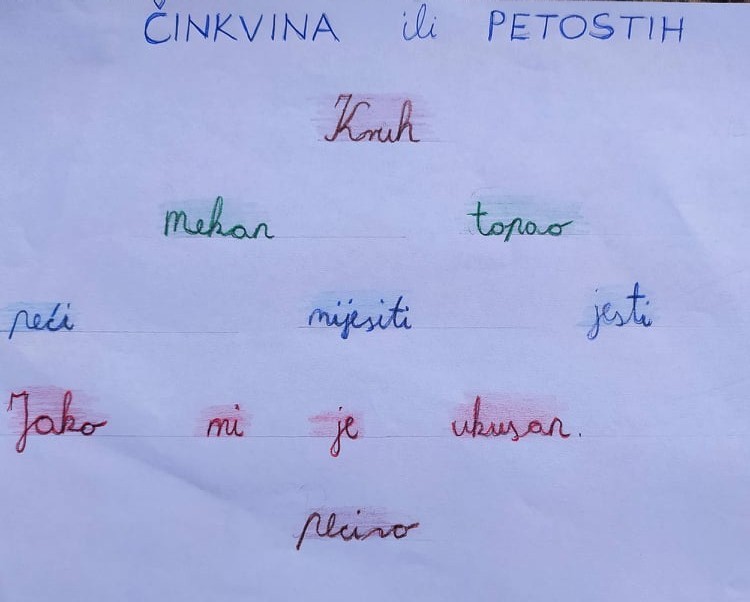 ČINKVINA ili PETOSTIH
Kruh
mekan topao
peći mijesiti jesti
Jako mi je ukusan.
pecivo